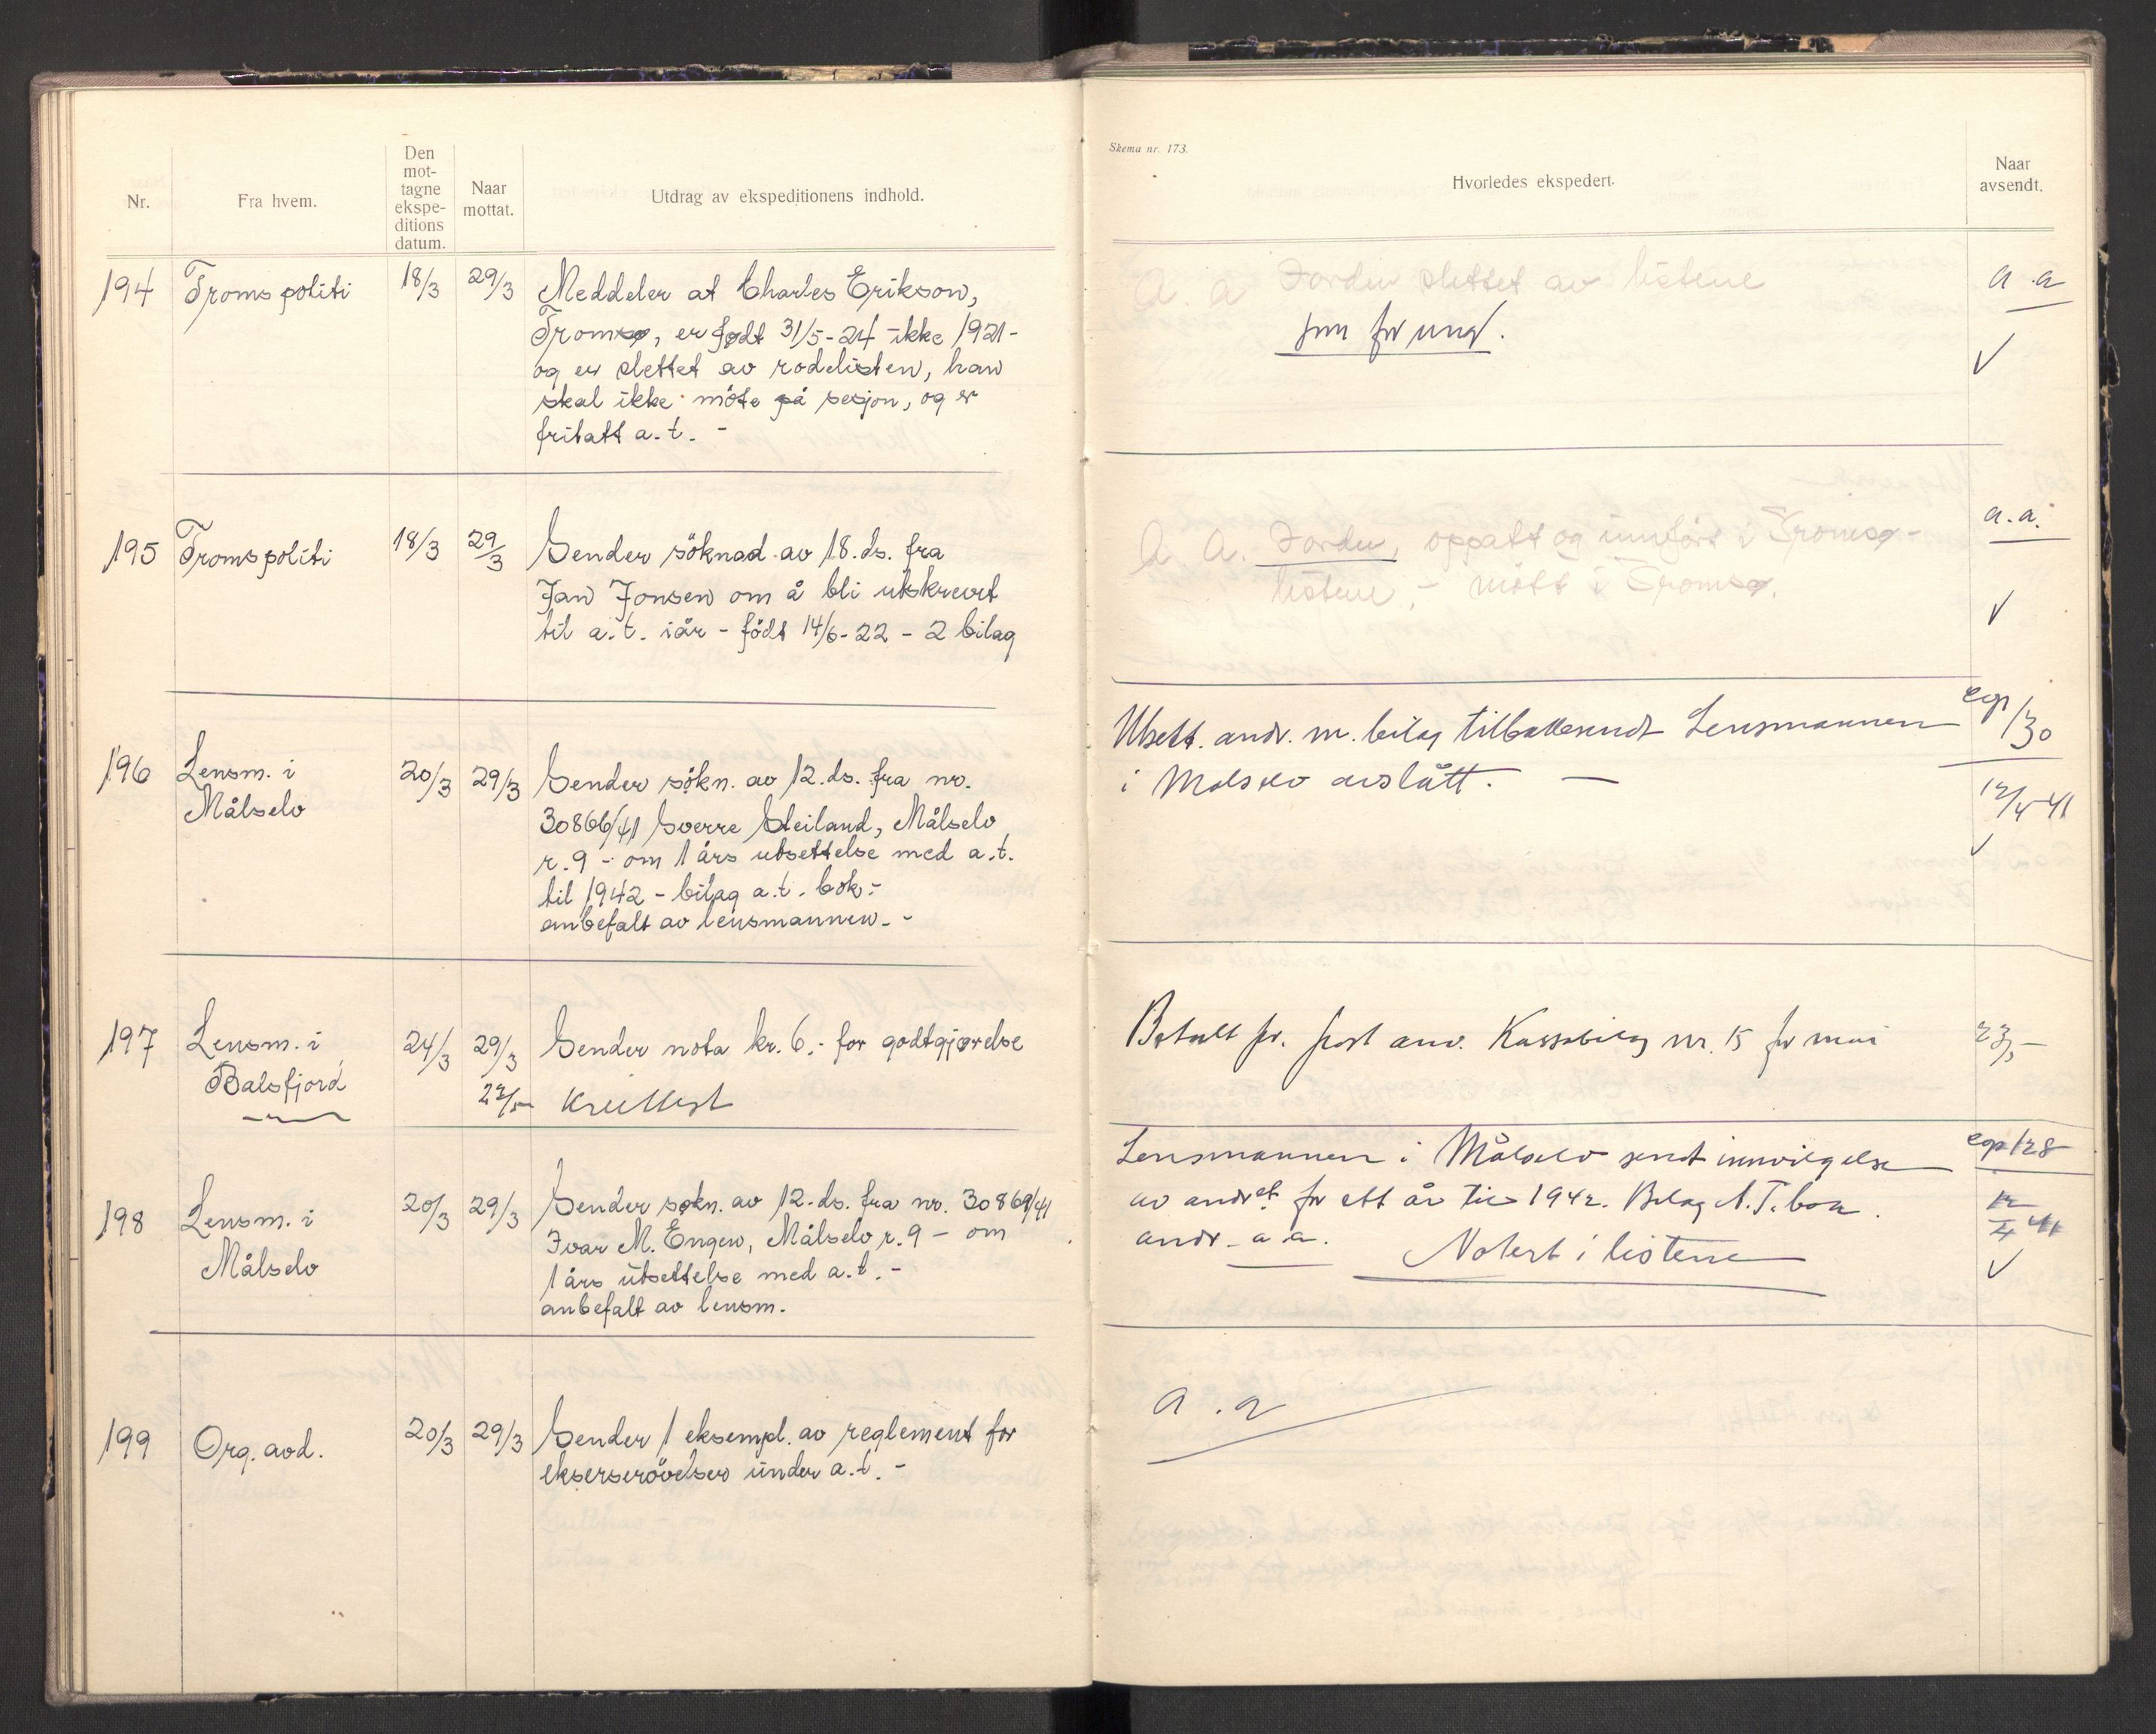 Nr.
Fra hvem.
Den
mot-
tagne
ekspe-
ditions
datum.
Naar
mottat.
Utdrag av ekspeditionens indhold.
194 Troms politi 18/3 29/3 Meddeler at Charles Erikson,
Tromsø, er født 31/5-24 ikke 1921-
og er slettet av rodelisten, han
skal ikke møte på sesjon, og er
fritatt a.t. -
195 Troms politi 18/3 29/3 Sender söknad av 18. ds. fra
Jan Jonsen om å bli utskrevet
til a.t. iår - födt 14/6-22 - 2 bilag
196 Lensm. i 20/3 29/3 Sender søkn. av 12. ds. fra nr.
Målselv 30866/41 Sverre Steiland, Målselv
r.9 - om 1 års utsettelse med a.t.
til 1942 - bilag a.t. bok -
anbefalt av lensmannen. -
197 Lensm. i 24/3 29/3 Sender nota kr. 6,- for godtgjørelse
Balsfjord
198 Lensm. i 20/3 29/3 Sender søkn. av 12. ds. fra nr. 30869/41
Målselv Ivar M. Engen, Målselv r.9 - om
1 års utsettelse med a.t. -
anbefalt av lensm.
199 Org. avd. 20/3 29/3 Sender 1 eksempl. av reglement for
ekserserövelser under a.t. -
Skema nr. 173.
Hvorledes ekspedert.
Naar
avsendt.
A. a slettet av listene a.a
for ung.
A. A. oppatt og innført i Tromsø- a.a.
listene, - møtt i Tromsø.
Utsett. andr. m. bilag tilbakesendt Lensmannen
i Målselv avslått. -
12/4 41
Betalt pr. post anv. Kassabilag nr. 15 for mai
Lensmannen i Målselv sendt innvilgelse
av andr. for ett år til 1942. Bilag A.T. bok.
andr. a a. Notert i listene
a.a